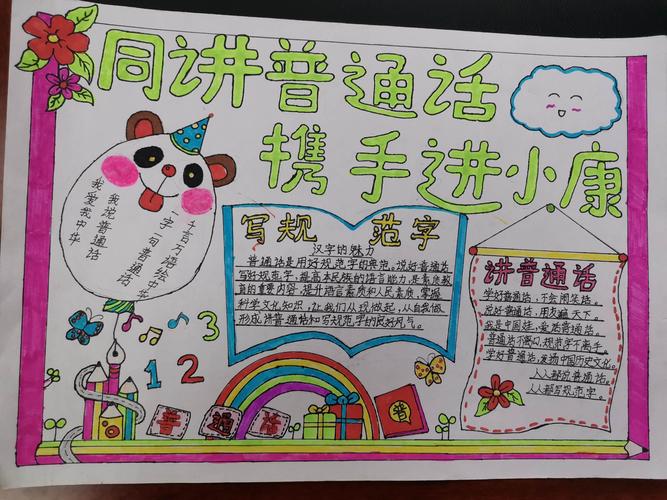 同讲普通话
携手进小康
千百万语绘中华
一字一句普通话
我说普通话
我爱我中华
写规范字
汉字的魅力
普通话是用好规范字的典范。说好普通话
写好规范字,提高本民族的语言能力,是素质教
育的重要内容,提升语言素质和人民素质,掌握
科学文化知识,让我们从现做起,从自我做
形成讲普通话和写规范字的良好风气。
讲普通话
学好普通话,不会闹笑话。
说好普通话,用友遍天下。
我是中国娃,爱说普通话。
普通话不离口,规范字不离手。
学好普通话,发扬中国历史文化。
人人都说普通话。
人人都写规范字。
1 2 3
普通话
普